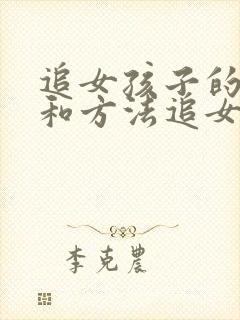 追女孩子的
和方法追女
李克農